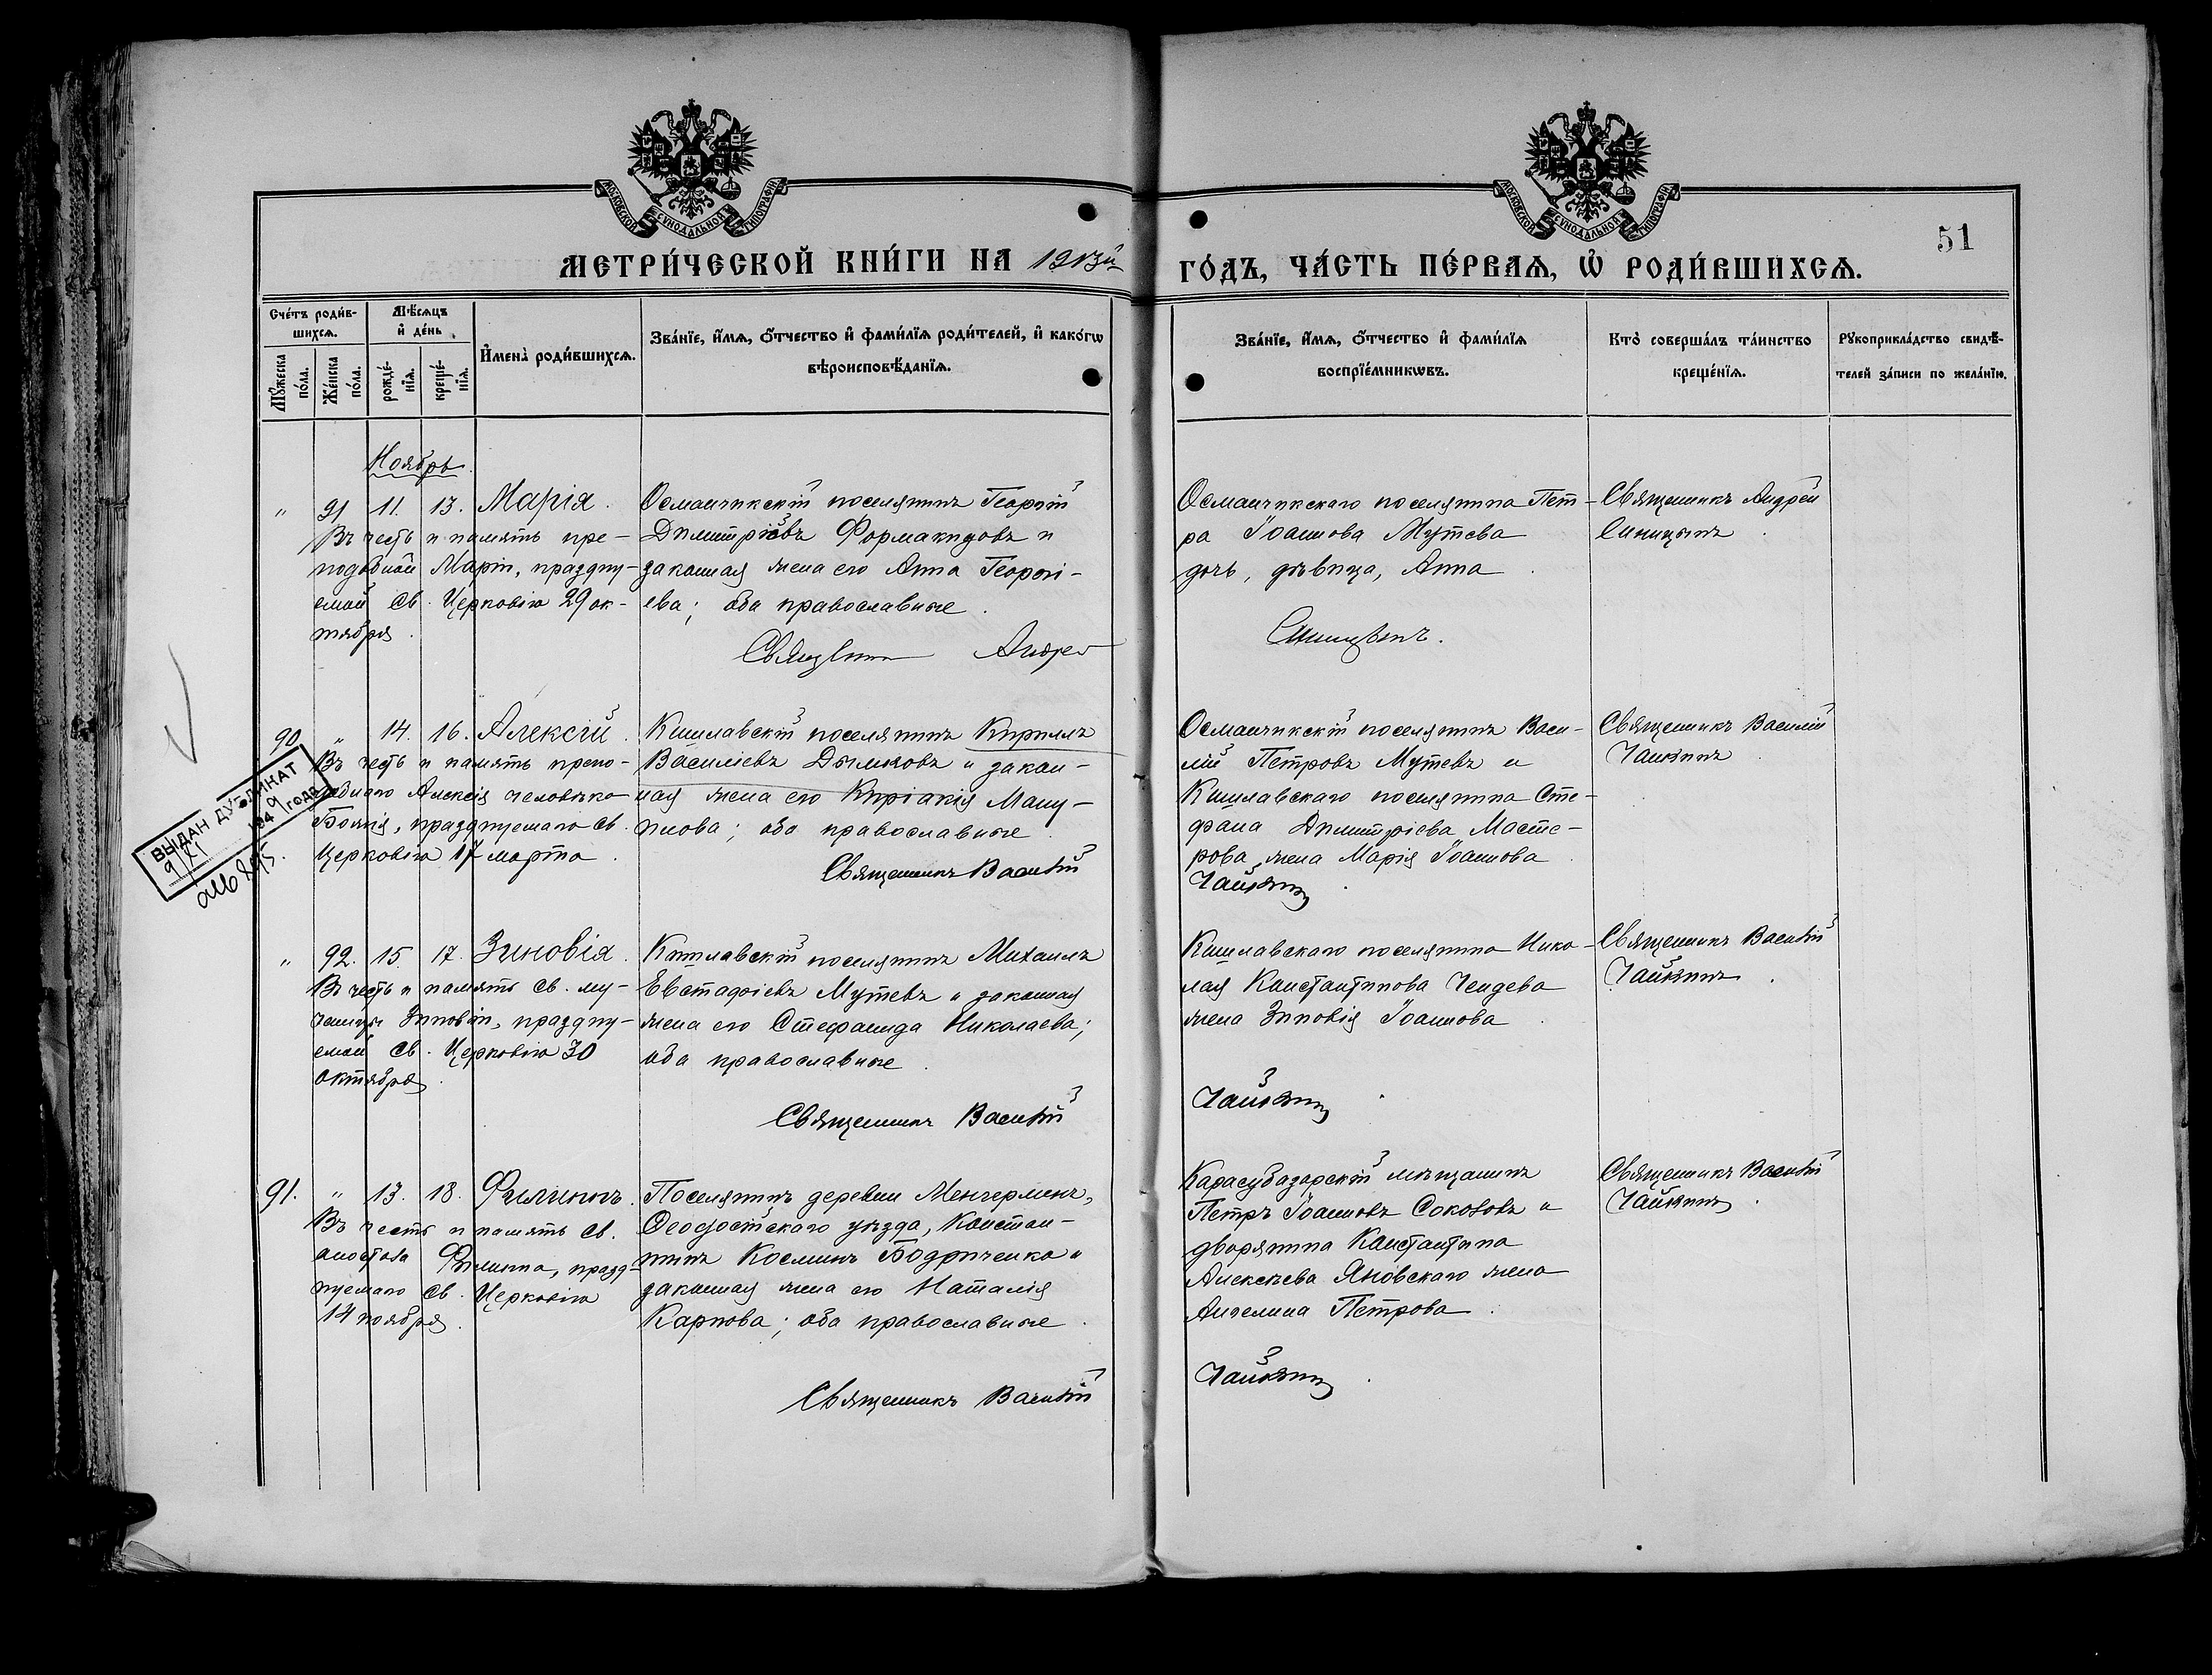 МОСКОВСКОЙ СѴНОДАЛЬНОЙ ТИПОГРАФІИ
МОСКОВСКОЙ СѴНОДАЛЬНОЙ ТИПОГРАФІИ
51
МЕТРИ́ЧЕСКОЙ КНИ́ГИ НА 1913й
ГО́ДЪ, ЧА́СТЬ ПЕ́РВАѦ, Ѡ҆ РОДИ́ВШИХСѦ.
Сче́тъ роди́в-
шихсѧ.
Мꙋ́жеска
по́ла.
Же́нска
по́ла.
Мѣ́сѧцъ
и҆ де́нь
рожде́-
нїѧ.
креще́-
нїѧ.
И҆мена̀ роди́вшихсѧ.
Зва́нїе, и҆́мѧ, ѻ҆́тчество и҆ фами́лїѧ роди́телей, и҆ како́гѡ
вѣроисповѣ́данїѧ.
Зва́нїе, и҆́мѧ, ѻ҆́тчество и҆ фами́лїѧ
воспрїе́мникѡвъ.
Кто̀ соверша́лъ та́инство
креще́нїѧ.
Рꙋкоприкла́дство свидѣ́-
телей за́писи по жела́нїю.
Ноябрь.
" 91 11. 13. Марія.
Въ честь и память пре-
подобной Маріи, праздну-
емой Св. Церковію 29 ок-
тября.
Османчикскій поселянинъ Георгій
Димитріевъ Формакидовъ и
законная жена его Анна Георгі-
ева; оба православные.
Священникъ Андрей
Османчикскаго поселянина Пет-
ра Іоаннова Мутева
дочь, дѣвица, Анна.
Синицынъ.
Священникъ Андрей
Синицынъ.
90. " 14. 16. Алексій.
Въ честь и память препо-
добнаго Алексія человѣка
Божія, празднуемаго Св.
Церковію 17 марта.
ВЫДАН ДУБЛИКАТ
9/XI 1949 года
Кишлавскій поселянинъ Кириллъ
Василіевъ Дымковъ и закон-
ная жена его Киріакія Ману-
илова; оба православные.
Священникъ Василій
Османчикскій поселянинъ Васи-
лій Петровъ Мутевъ и
Кишлавскаго поселянина Сте-
фана Димитріева Масте-
рова жена Марія Іоаннова.
Чайкинъ.
Священникъ Василій
Чайкинъ.
" 92. 15. 17. Зиновія.
Въ честь и память св. му-
ченицы Зиновіи, праздну-
емой Св. Церковію 30
октября.
Кишлавскій поселянинъ Михаилъ
Евстафіевъ Мутевъ и законная
жена его Стефанида Николаева;
оба православные.
Священникъ Василій
Кишлавскаго поселянина Нико-
лая Константинова Чендева
жена Зиновія Іоаннова.
Чайкинъ.
Священникъ Василій
Чайкинъ.
91. " 13. 18. Филиппъ.
Въ честь и память св.
апостола Филиппа, празд-
нуемаго Св. Церковію
14 ноября.
Поселянинъ деревни Менгерменъ,
Ѳеодосійскаго уѣзда, Констан-
тинъ Косминъ Бодриченко и
законная жена его Наталія
Карпова; оба православные.
Священникъ Василій
Карасубазарскій мѣщанинъ
Петръ Іоанновъ Соколовъ и
дворянина Константина
Алексѣева Яновскаго жена
Ангелина Петрова.
Чайкинъ.
Священникъ Василій
Чайкинъ.